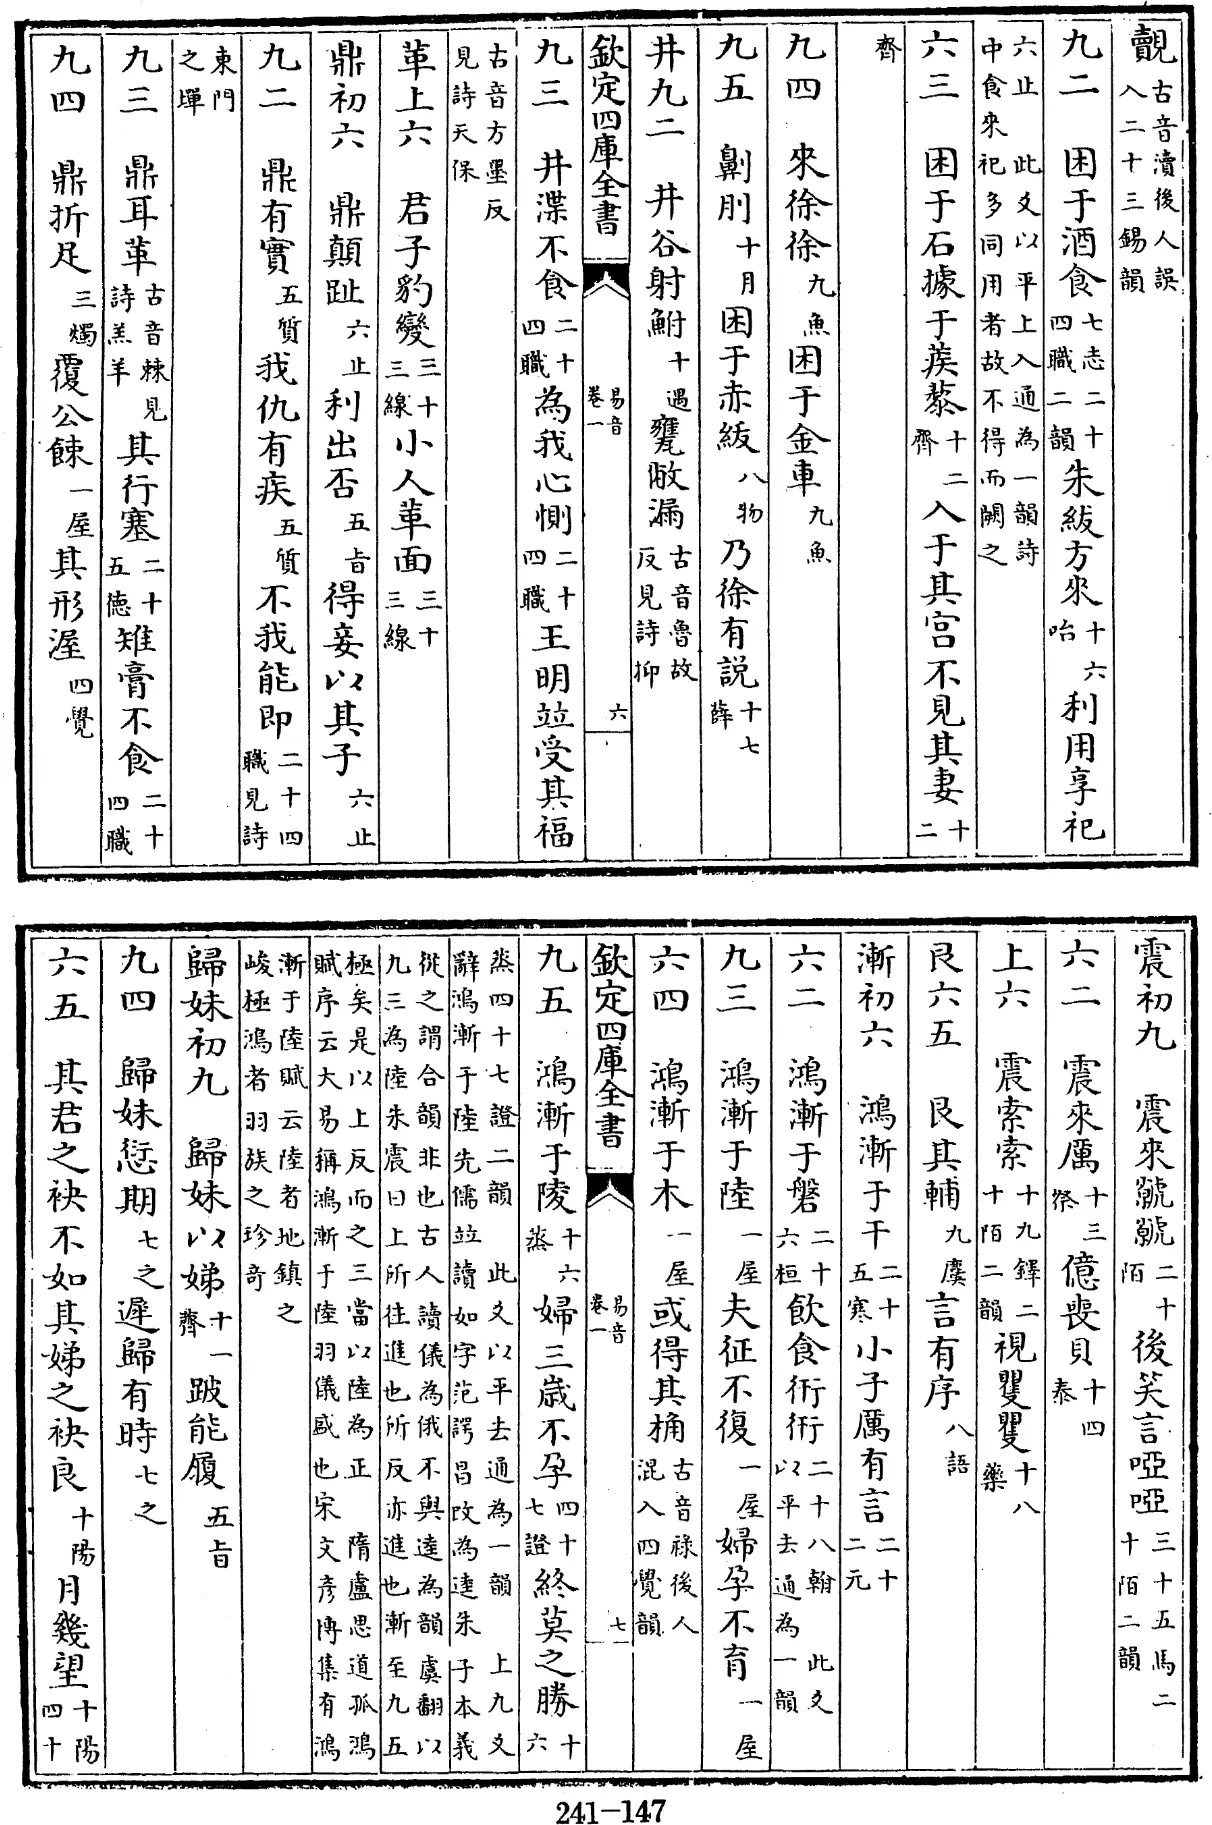 覿古音瀆後人誤入二十三錫韻
九二　困于酒食七志二十四職二韻朱紱方來十六咍利用享祀
六止　此爻以平上入通為一韻詩中食來祀多同用者故不得而闕之
六三　困于石據于蒺藜十二齊入于其宮不見其妻十二
齊
九四　來徐徐九魚困于金車九魚
九五　劓刖十月困于赤紱八物乃徐有説十七薛
井九二　井谷射鮒十遇甕敝漏古音魯故反見詩抑
欽定四庫全書　易音卷一　六
九三　井渫不食二十四職為我心惻二十四職王明竝受其福
古音方墨反見詩天保
革上六　君子豹變三十三線小人革面三十三線
鼎初六　鼎顛趾六止利出否五旨得妾以其子六止
九二　鼎有實五質我仇有疾五質不我能即二十四職見詩
東門之墠
九三　鼎耳革古音棘見詩羔羊其行塞二十五德雉膏不食二十四職
九四　鼎折足三燭覆公餗一屋其形渥四覺
震初九　震來虩虩二十陌後笑言啞啞三十五馬二十陌二韻
六二　震來厲十三祭億喪貝十四泰
上六　震索索十九鐸二十陌二韻視矍矍十八藥
艮六五　艮其輔九麌言有序八語
漸初六　鴻漸于干二十五寒小子厲有言二十二元
六二　鴻漸于磐二十六桓飲食衎衎二十八翰　此爻以平去通為一韻
九三　鴻漸于陸一屋夫征不復一屋婦孕不育一屋
六四　鴻漸于木一屋或得其桷古音祿後人混入四覺韻
欽定四庫全書　易音卷一　七
九五　鴻漸于陵十六蒸婦三歲不孕四十七證終莫之勝十六
蒸四十七證二韻　此爻以平去通為一韻　上九爻辭鴻漸于陸先儒竝讀如字范諤昌改為逵朱子本義
從之謂合韻非也古人讀儀為俄不與逵為韻虞翻以九三為陸朱震曰上所往進也所反亦進也漸至九五
極矣是以上反而之三當以陸為正　隋盧思道孤鴻賦序云大易稱鴻漸于陸羽儀盛也宋文彥博集有鴻
漸于陸賦云陸者地鎮之峻極鴻者羽族之珍奇
歸妹初九　歸妹以娣十一薺跛能履五旨
九四　歸妹愆期七之遲歸有時七之
六五　其君之袂不如其娣之袂良十陽月幾望十陽四十
241-147